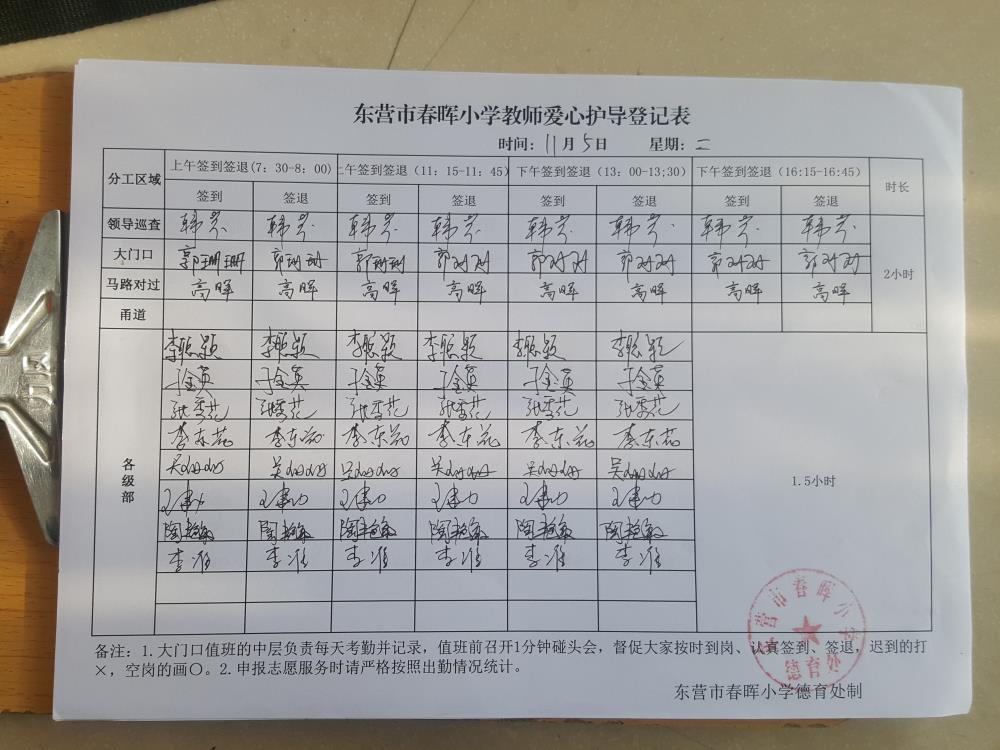 东营市春晖小学教师爱心护导登记表
时间：11月5日 星期：二
分工区域 上午签到签退(7：30-8：00) 上午签到签退（11：15-11：45） 下午签到签退（13：00-13;30） 下午签到签退（16:15-16:45） 时长
签到 签退 签到 签退 签到 签退 签到 签退
领导巡查 韩芬 韩芬 韩芬 韩芬 韩芬 韩芬 韩芬 韩芬
大门口 郭珊珊 郭珊珊 郭珊珊 郭珊珊 郭珊珊 郭珊珊 郭珊珊 郭珊珊 2小时
马路对过 高晖 高晖 高晖 高晖 高晖 高晖 高晖 高晖
甬道
李聪颖 李聪颖 李聪颖 李聪颖 李聪颖 李聪颖
于金英 于金英 于金英 于金英 于金英 于金英
张秀花 张秀花 张秀花 张秀花 张秀花 张秀花
李东花 李东花 李东花 李东花 李东花 李东花
各级部 吴姗姗 吴姗姗 吴姗姗 吴姗姗 吴姗姗 吴姗姗 1.5小时
王建功 王建功 王建功 王建功 王建功 王建功
陶艳敏 陶艳敏 陶艳敏 陶艳敏 陶艳敏 陶艳敏
李准 李准 李准 李准 李准 李准
东营市春晖小学
德育处
备注：1.大门口值班的中层负责每天考勤并记录，值班前召开1分钟碰头会，督促大家按时到岗、认真签到、签退，迟到的打
×，空岗的画〇。2.申报志愿服务时请严格按照出勤情况统计。
东营市春晖小学德育处制